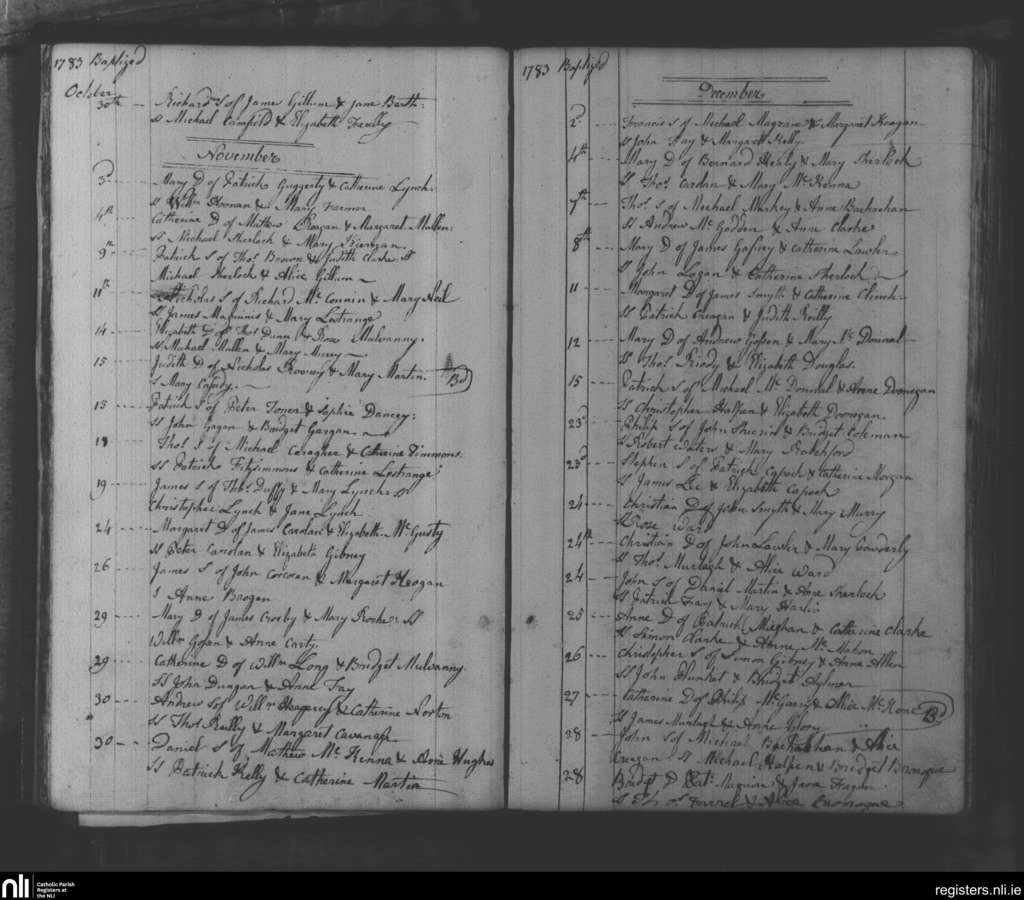 1783 Baptized
October
30th Richard S of James Gillum & Jane Barth:
Ss Michael Camfield & Elizabeth Faully
November
3d Mary D of Patrick Guggerty & Catherine Lynch
Ss Willm Noonan & Mary Farmer
4th Catherine D of Mathew Creagan & Margaret Mullen:
Ss Michael Sherlock & Mary Kiernan
9th Patrick S of Thos Brown & Judith Clarke Ss
Michael Sherlock & Alice Gillum
11th Nicholas S of Richard Mc Connin & Mary Neil
Ss James Maginnis & Mary Lestrange
14 Elizabeth D of Thos Dunn & Rose Mulvanny:
Ss Michael Mullen & Mary Murry
15 Judith D of Nicholas & Mary Martin. Bd
S Mary Cassidy.
15 Patrick S of Peter Toner & Sophia Dancey:
Ss John Gagan & Bridget Gargan
18 Thos S of Michael Caragher & Catherine Simmons:
Ss Patrick Fitzsimmons & Catherine Lestrange
19 James S of Thos Duffy & Mary Lynch Ss
Christopher Lynch & Jane Lynch
24 Margaret D of James Cardan & Elizabeth Mc Gusty
Ss Peter Carolan & Elizabeth Gibney
26 James S of John Corcoran & Margaret Heogan
S Anne Brogan
29 Mary D of James Crosby & Mary Roche: Ss
Willm Gosan & Anne Carty.
29 Catherine D of Willm Long & Bridget Mulvanny
Ss John Dungan & Anne Fay
30 Andrew S of Willm Heagerty & Catherine Norton
Ss Thos Reilly & Margaret Cavanagh
30 Daniel S of Mathew Mc Kenna & Anne Hughes
Ss Patrick Kelly & Catherine Martin
1783 Baptized
December
2d Francis S of Michael Magrane & Margaret Heagan
Ss John Fay & Margaret Kelly
4th Mary D of Bernard Healy & Mary Sherlock
Ss Thos Cardan & Mary Mc Kenna
7th Thos S of Michael Markey & Anne Barkachan
Ss Andrew Mc Godden & Anne Clarke
8th Mary D of James Gafney & Catherine Lawler
Ss John Logan & Catherine Sherlock
11 Margaret D of James Smyth & Catherine Clinch
Ss Patrick Creagan & Judith Reilly
12 Mary D of Andrew Goson & Mary Mc Donnal
Ss Thos Kiody & Elizabeth Douglas.
15 Patrick S of Michael Mc Donnal & Anne Donegan
Ss Christopher Halpen & Elizabeth Donegan.
23d Philip S of John Sherin & Bridget Coleman
Ss Robert Waters & Mary Rochford
23d Stephen S of Patrick Capoch & Catherine Morgan
Ss James Lee & Elizabeth Capoch
24 Christian D of John Smyth & Mary Murry
S Rose Ward
24th Christian D of John Lawler & Mary Gowderly
Ss Thos Murtagh & Alice Ward
24 John S of Daniel Martin & Anne Sherlock
Ss Patrick Fay & Mary Harlin
25 Anne D of Patrick Meighan & Catherine Clarke
Ss Simon Clarke & Anne Mc Mahon
26 Christopher S of Simon Gibney & Anne Allen
Ss John Plunket & Bridget Aylmer
27 Catherine D of Philip Mc Garry & Alice Mc Kone Bd
Ss James Murtagh & Anne
28 John S of Michael Barkachan & Alice
Creagan Ss Michael Halpen & Bridget Bronogue
28 Bridget D Patk Maguire & Jane Fagan
Ss Thos Farrel & Alice Bronogue
nli
Catholic Parish
Registers at
the NLI
registers.nli.ie